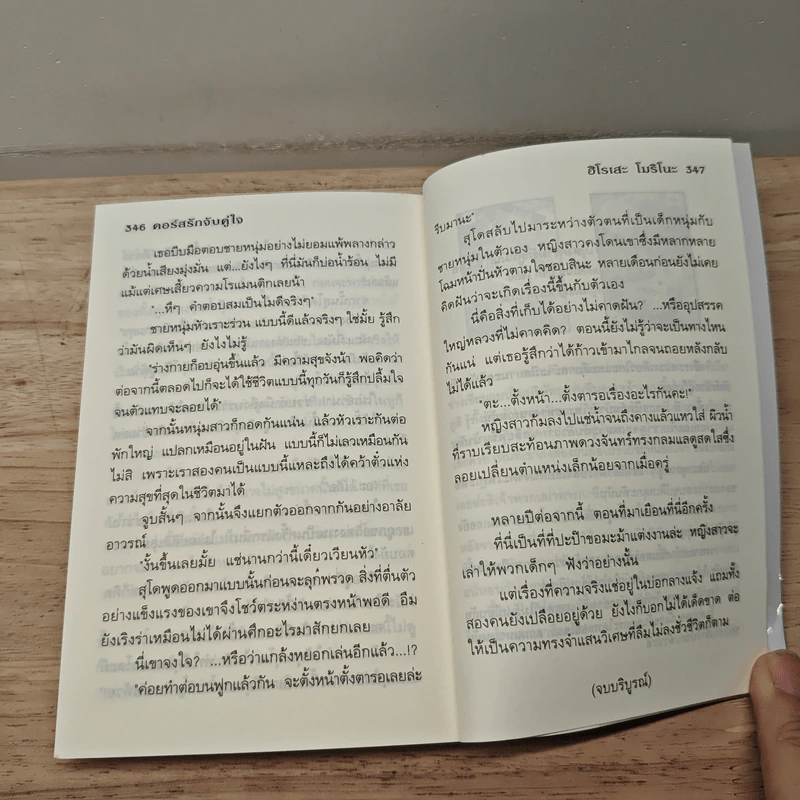 346 คอร์สรักจับคู่ใจ
เธอบีบมือตอบชายหนุ่มอย่างไม่ยอมแพ้พลางกล่าว
ด้วยน้ำเสียงมุ่งมั่น แต่...ยังไงๆ ที่นี่มันก็บ่อน้ำร้อน ไม่มี
แม้แต่เศษเสี้ยวความโรแมนติกเลยน้า
"...หึๆ คำตอบสมเป็นไมดีจริงๆ"
ชายหนุ่มหัวเราะร่วน แบบนี้ดีแล้วจริงๆ ใช่มั้ย รู้สึก
ว่ามันผิดเห็นๆ ยังไงไม่รู้
"ร่างกายก็อบอุ่นขึ้นแล้ว มีความสุขจังน้า พอคิดว่า
ต่อจากนี้ตลอดไปก็จะได้ใช้ชีวิตแบบนี้ทุกวันก็รู้สึกปลื้มใจ
จนตัวแทบจะลอยได้"
จากนั้นหนุ่มสาวก็กอดกันแน่น แล้วหัวเราะกันต่อ
พักใหญ่ แปลกเหมือนอยู่ในฝัน แบบนี้ก็ไม่เลวเหมือนกัน
ไม่สิ เพราะเราสองคนเป็นแบบนี้แหละถึงได้คว้าตั๋วแห่ง
ความสุขที่สุดในชีวิตมาได้
จูบสั้นๆ จากนั้นจึงแยกตัวออกจากกันอย่างอาลัย
อาวรณ์
"งั้นขึ้นเลยมั้ย แช่นานกว่านี้เดี๋ยวเวียนหัว"
สุโดพูดออกมาแบบนั้นก่อนจะลุกพรวด สิ่งที่ตื่นตัว
อย่างแข็งแรงของเขาจึงโชว์ตระหง่านตรงหน้าพอดี อืม
ยังเริงร่าเหมือนไม่ได้ผ่านศึกอะไรมาสักยกเลย
นี่เขาจงใจ? ...หรือว่าแกล้งหยอกเล่นอีกแล้ว...!?
"ค่อยทำต่อบนฟูกแล้วกัน จะตั้งหน้าตั้งตารอเลยล่ะ
ฮิโรเสะ โมริโนะ 347
รีบมานะ"
สุโดสลับไปมาระหว่างตัวตนที่เป็นเด็กหนุ่มกับ
ชายหนุ่มในตัวเอง หญิงสาวคงโดนเขาซึ่งมีหลากหลาย
โฉมหน้าปั่นหัวตามใจชอบสินะ หลายเดือนก่อนยังไม่เคย
คิดฝันว่าจะเกิดเรื่องนี้ขึ้นกับตัวเอง
นี่คือสิ่งที่เก็บได้อย่างไม่คาดฝัน? ...หรืออุปสรรค
ใหญ่หลวงที่ไม่คาดคิด? ตอนนี้ยังไม่รู้ว่าจะเป็นทางไหน
กันแน่ แต่เธอรู้สึกว่าได้ก้าวเข้ามาไกลจนถอยหลังกลับ
ไม่ได้แล้ว
"ตะ...ตั้งหน้า...ตั้งตารอเรื่องอะไรกันคะ!"
หญิงสาวก้มลงไปแช่น้ำจนถึงคางแล้วแหวใส่ ผิวน้ำ
ที่ราบเรียบสะท้อนภาพดวงจันทร์ทรงกลมแลดูสดใสซึ่ง
ลอยเปลี่ยนตำแหน่งเล็กน้อยจากเมื่อครู่
หลายปีต่อจากนี้ ตอนที่มาเยือนที่นี่อีกครั้ง
ที่นี่เป็นที่ที่ปะป๊าขอมะม้าแต่งงานล่ะ หญิงสาวจะ
เล่าให้พวกเด็กๆ ฟังว่าอย่างนั้น
แต่เรื่องที่ความจริงแช่อยู่ในบ่อกลางแจ้ง แถมทั้ง
สองคนยังเปลือยอยู่ด้วย ยังไงก็บอกไม่ได้เด็ดขาด ต่อ
ให้เป็นความทรงจำแสนวิเศษที่ลืมไม่ลงชั่วชีวิตก็ตาม
(จบบริบูรณ์)